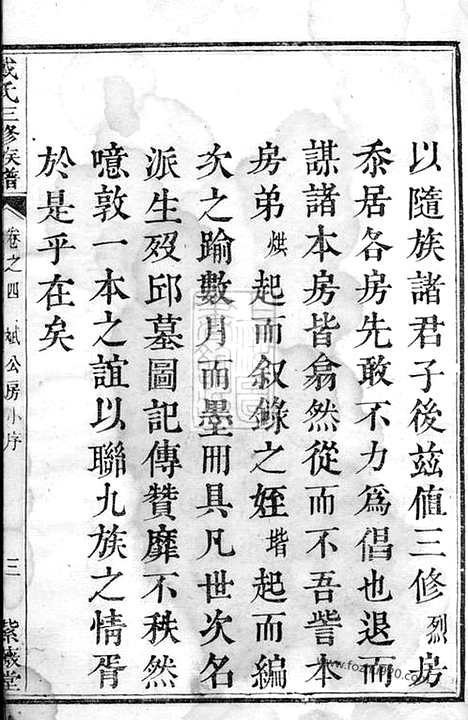 以隨族諸君子後茲值三修烈房
忝居各房先敢不力爲倡也退而
謀諸本房皆翕然從而不吾訾本
房弟烘起而叙錄之姪堦起而編
次之踰數月而墨冊具凡世次名
派生歿邱墓圖記傳贊靡不秩然
噫敦一本之誼以聯九族之情胥
於是乎在矣
氏三修族譜
卷之四
斌公房小序
三
紫
堂